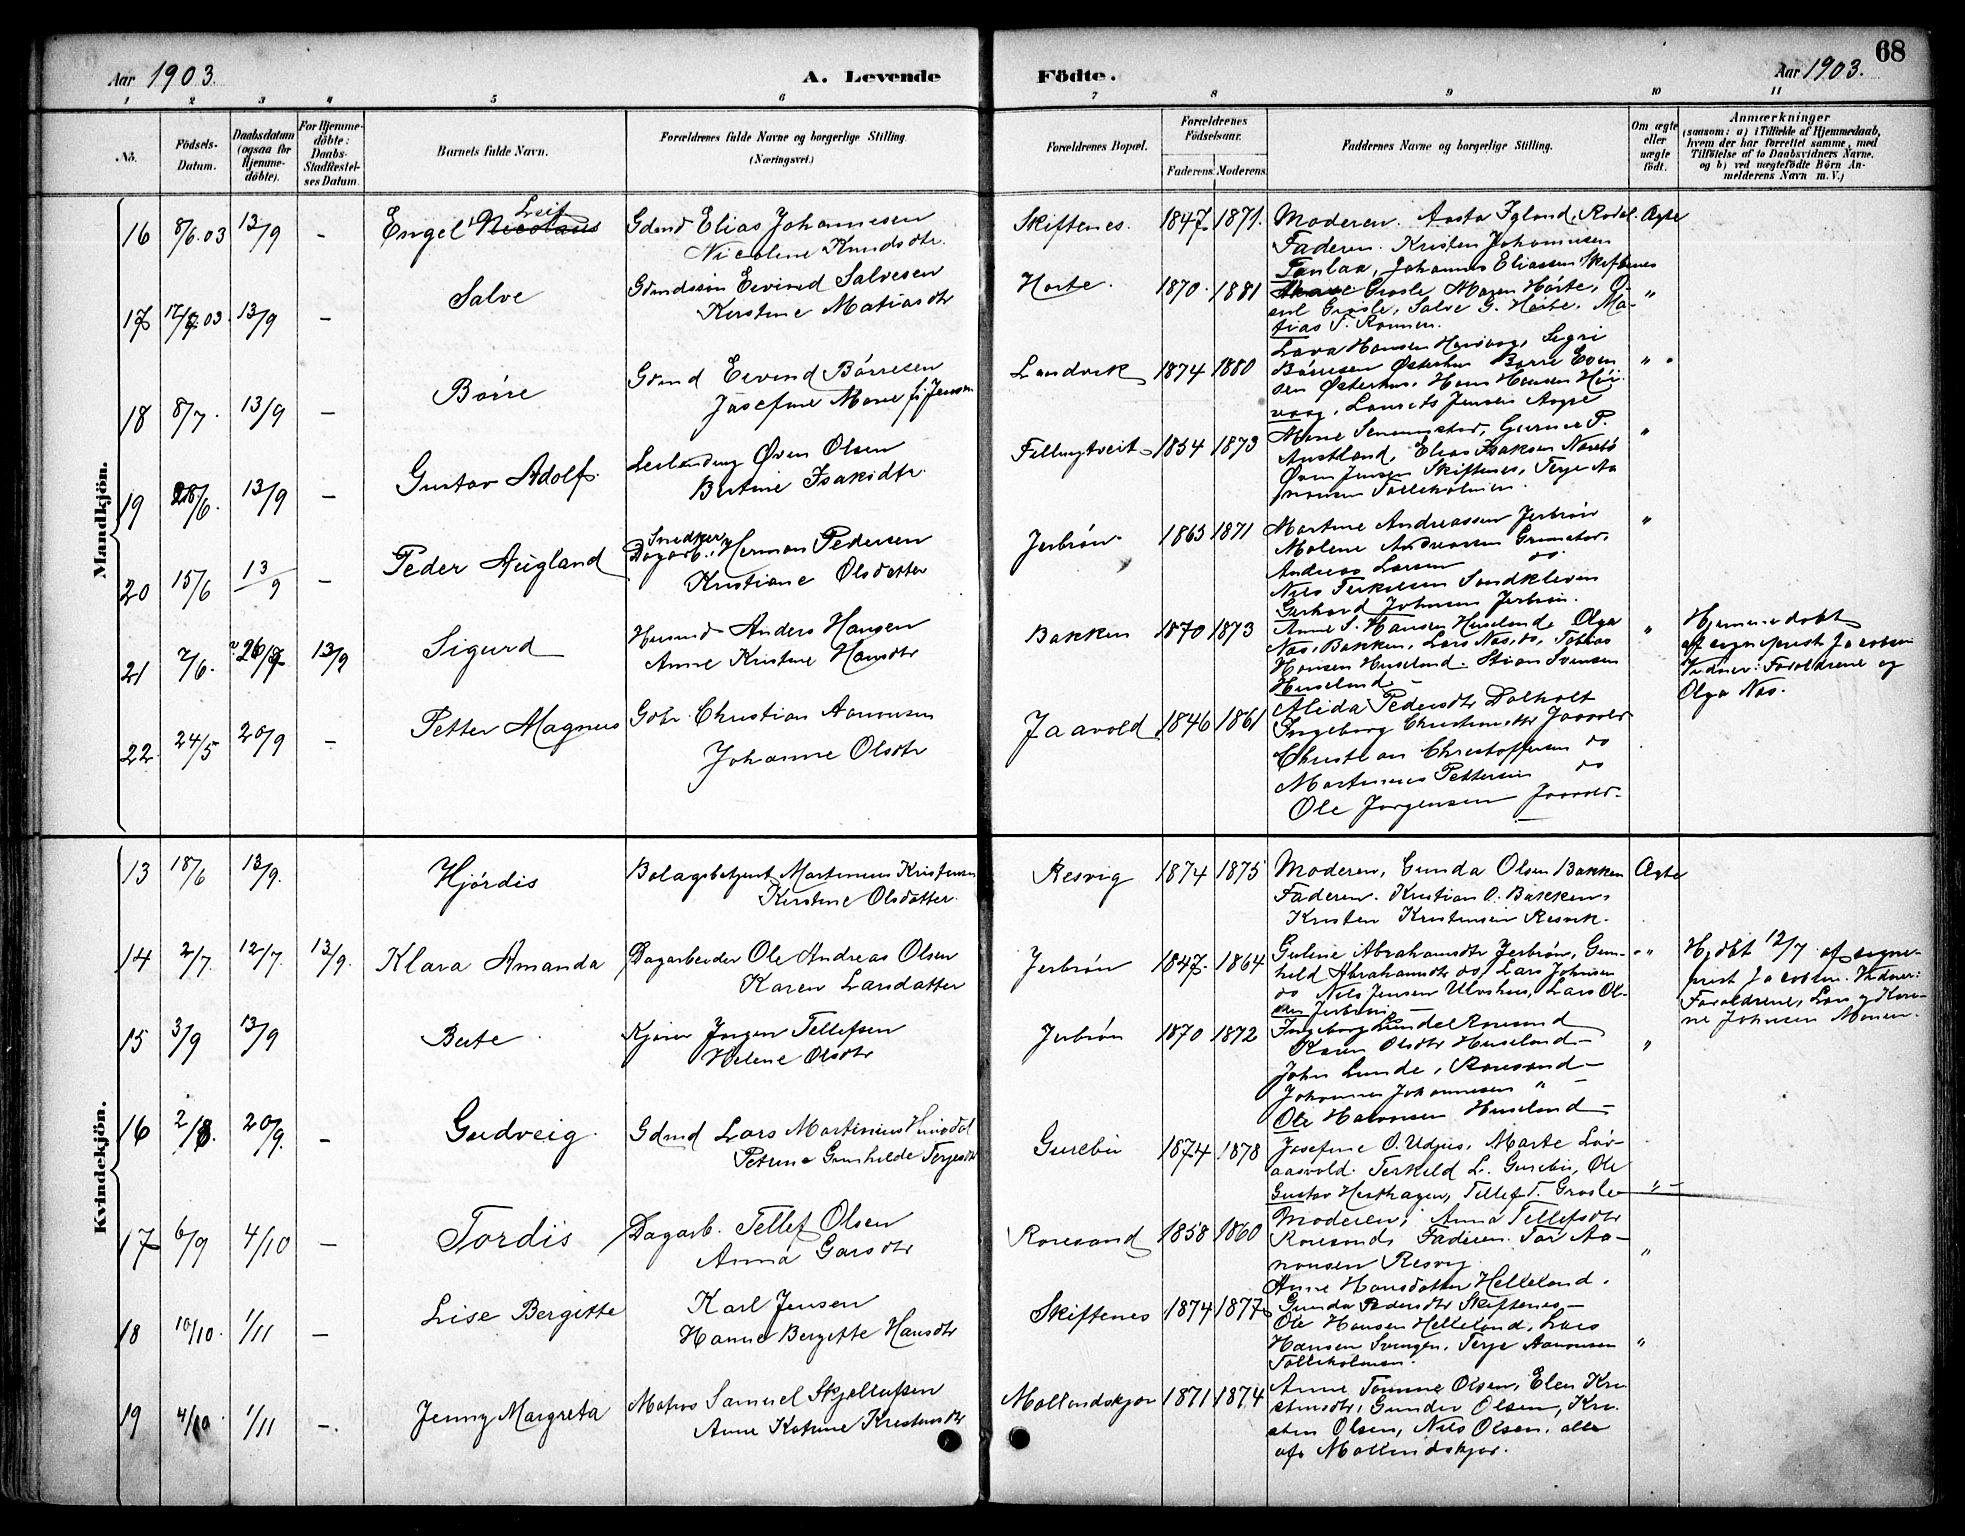 68
Aar 1903.
A. Levende
Födte.
Aar 1903.
1 2 3 4 5 6 7 8 9 10 11
No.
Födsels-Datum.
Daabsdatum (ogsaa for Hjemme-döbte).
For Hjemme-döbte: Daabs-Stadfæstel-ses Datum.
Barnets fulde Navn.
Forældrenes fulde Navne og borgerlige Stilling.
(Næringsvei.)
Forældrenes Bopæl.
Forældrenes Födselsaar.
Faderens. Moderens.
Faddernes Navne og borgerlige Stilling.
Om ægte eller uægte födt.
Anmærkninger
(saasom: a) i Tilfælde af Hjemmedaab, hvem der har forrettet samme, med Tilföielse af to Daabsvidners Navne, og b) ved uægtefödte Börn Anmelderens Navn m. V.)
Mandkjön.
16 8/6.03 13/9 - Engel Nicolaus Leif
Gdmd Elias Johannesen
Nicoline Knudsdtr.
Skiftenes. 1847 1871.
Moderen. Aasta Igland,
Faderen. Kristen Johannesen
Johannes Eliassen Skiftenes
Ægte
17 03. 13/9 - Salve
Gdmdssön Eivind Salvesen
Kirstine Matiasdtr
Horte. 1870. 1881
Grosle Maren Hörte,
Grosle, Salve G. Hörte, Ma-
tias T. "
18 8/7. 13/9 - Börre
Gdmd Eivind Börresen
Josefine Marie
Landvik 1874 1880
Börresen Østerhus Börre Even
sen Østerhus, Hans Hansen
Laurits Jensen " "
19 28/6. 13/9 - Gustav Adolf.
Øven Olsen
Bertine Isaksdtr.
1854 1873
Elias Isaksen
Øven Jensen Skiftenes, Terje Aa
nonsen Tolleholmen. "
20 15/6 13/9 - Peder Augland
Snedker
Dagarb. Herman Pedersen
Kristiane Olsdatter
Jerbrön 1863 1871
Martine Andreassen Jerbrön
Malene Andreassen Grimstad,
Andreas Larsen do.
Nils Terkelsen Sandkleven
Gerhard Johnsen Jerbrön. "
21 7/6. 13/9 Sigurd
Husmd Anders Hansen
Anne Kristine Hansdtr
Bakken 1870 1873
Anne S. Hansen Huseland, Olga
Nas, Bakken, Lars Nas, do, Tobias
Hansen Huseland. Stian Svensen
Huseland - "
Hjemmedöbt
af sogneprest Jacobsen
Vidner: Forældrene og
Olga Nas.
22. 24/5 20/9 - Petter Magnus
Gdbr. Christian Aanonsen
Johanne Olsdtr
Jaavold 1846 1861
Alida Pedersdtr Dalholt
Ingeborg Christiansdtr Jaavold
Christian Christoffersen do
Martinius Pettersen do
Ole Jörgensen Jaavold.
Kvindekjön.
13 18/6 13/9. Hjördis
Bolagsbetjent Martinius Kristensen
Kirstine Olsdatter.
Resvig 1874 1875
Moderen, Gunda Olsen Bakken
Faderen. Kristian O. Bakken,
Kristen Kristensen Resvik.
Ægte
14 2/7. 12/7. 13/9. Klara Amanda
Dagarbeider Ole Andreas Olsen
Karen Larsdatter
Jerbrön 1847 1864
Guline Abrahamsdtr Jerbrön, Gun-
hild Abrahamsdtr do, Lars Johnsen
do Nils Jensen Ulvshus, Lars Ol-
sen Jerbrön - "
Hjdbt 12/7. af sogne-
prest Jacobsen. Vidner:
Forældrene, Lars og
Johnsen
15 3/9 13/9 Bate
Kjörer Jörgen Tellefsen
Helene Olsdtr
Jerbrön 1870 1872
Ingeborg Lunde Roresand
Karen Olsdtr Huseland -
John Lunde, Roresand -
Johannes Johannesen " -
Ole Halvorsen Huseland - "
16 2/8. 20/9. - Gudveig.
Gdmd Lars Martinius
Petrine Gunhilde Terjesdtr
Gurebu 1874 1878
Josefine O. Udjus, Marte Löv-
aasvold. Terkild L. Gurebu, Ole
Gustav Hesthagen, Tellef T. Grosle " -
17 6/9 4/10 - Tordis
Dagarb. Tellef Olsen
Anna Garsdtr
Roresand 1858 1860
Moderen, Anna Tellefsdtr
Roresand, Faderen. Tor Aa-
nonsen Resvig "
18 10/10. 1/11 - Lise Bergitte
Karl Jensen
Hanne Bergitte Hansdtr
Skiftenes 1874 1877
Anne Hansdatter Helleland.
Gunda Pedersdtr Skiftenes -
Ole Hansen Helleland, Lars
Hansen Svingen, Terje Aanonsen
Tolleholmen. "
19 4/10 1/11 - Jenny Margreta
Matros Samuel Skjellufsen
Anne Katrine Kristensdtr
Mollandskjær 1871 1874
Anne Tomine Olsen, Elen Kri
stensdtr, Gunder Olsen, Kri
sten Olsen, Nils Olsen, alle
af Mollandskjær.